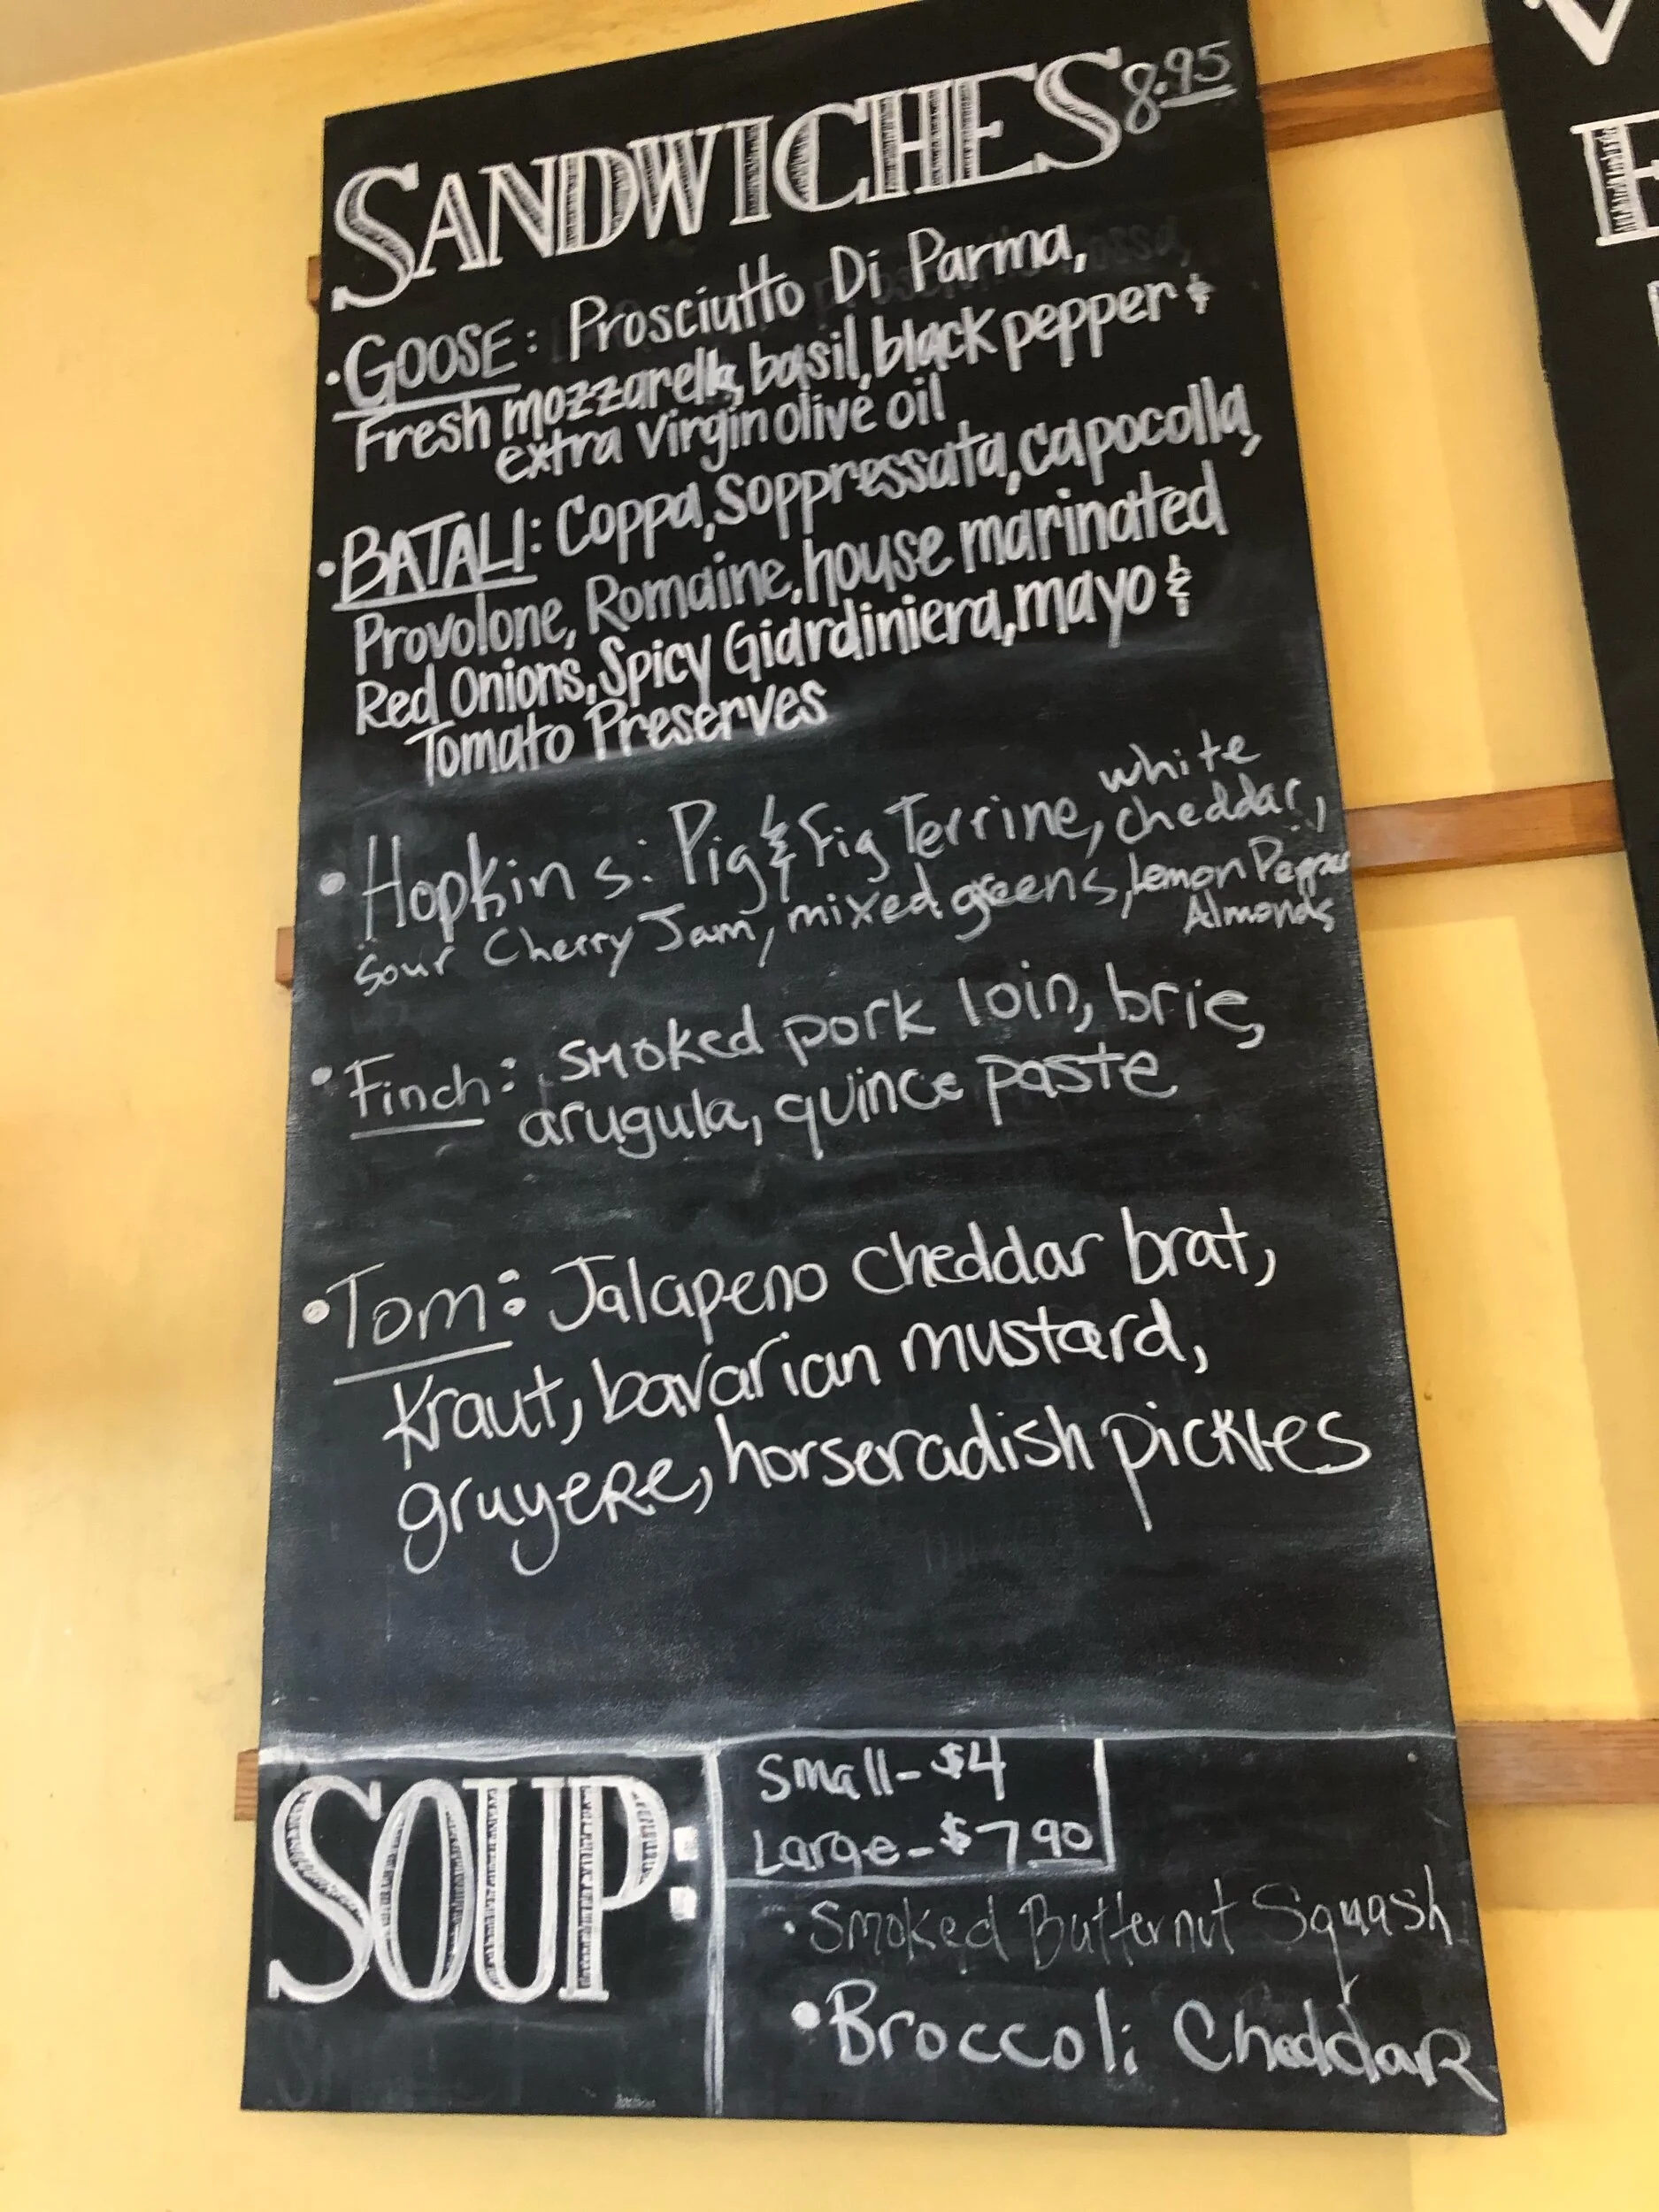 SANDWICHES 8.95
• GOOSE: Prosciutto Di Parma,
Fresh mozzarella, basil, black pepper &
extra virgin olive oil
• BATALI: Coppa, Soppressata, capocolla,
Provolone, Romaine, house marinated
Red Onions, Spicy Giardiniera, mayo &
Tomato Preserves
• Hopkins: Pig & Fig Terrine, white
cheddar,
Sour Cherry Jam, mixed greens, lemon Pepper
Almonds
• Finch: smoked pork loin, brie,
arugula, quince paste
• Tom: Jalapeno cheddar brat,
kraut, bavarian mustard,
gruyere, horseradish pickles
SOUP:
Small - $4
Large - $7.90
• Smoked Butternut Squash
• Broccoli Cheddar